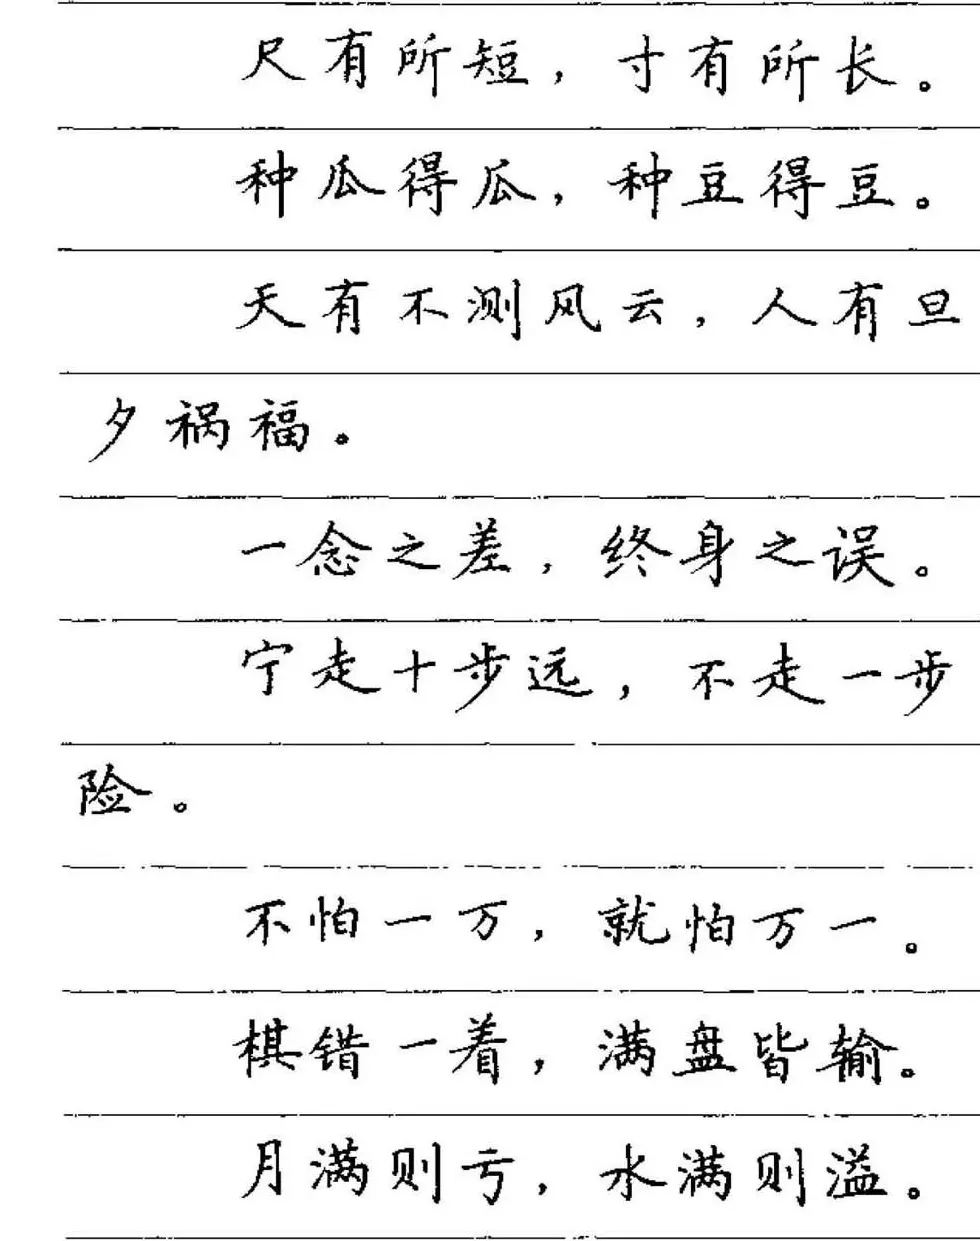 尺有所短，寸有所长。
种瓜得瓜，种豆得豆。
天有不测风云，人有旦
夕祸福。
一念之差，终身之误。
宁走十步远，不走一步
险。
不怕一万，就怕万一。
棋错一着，满盘皆输。
月满则亏，水满则溢。